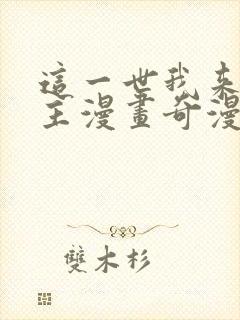 這一世我来
主漫畫奇漫
雙木杉